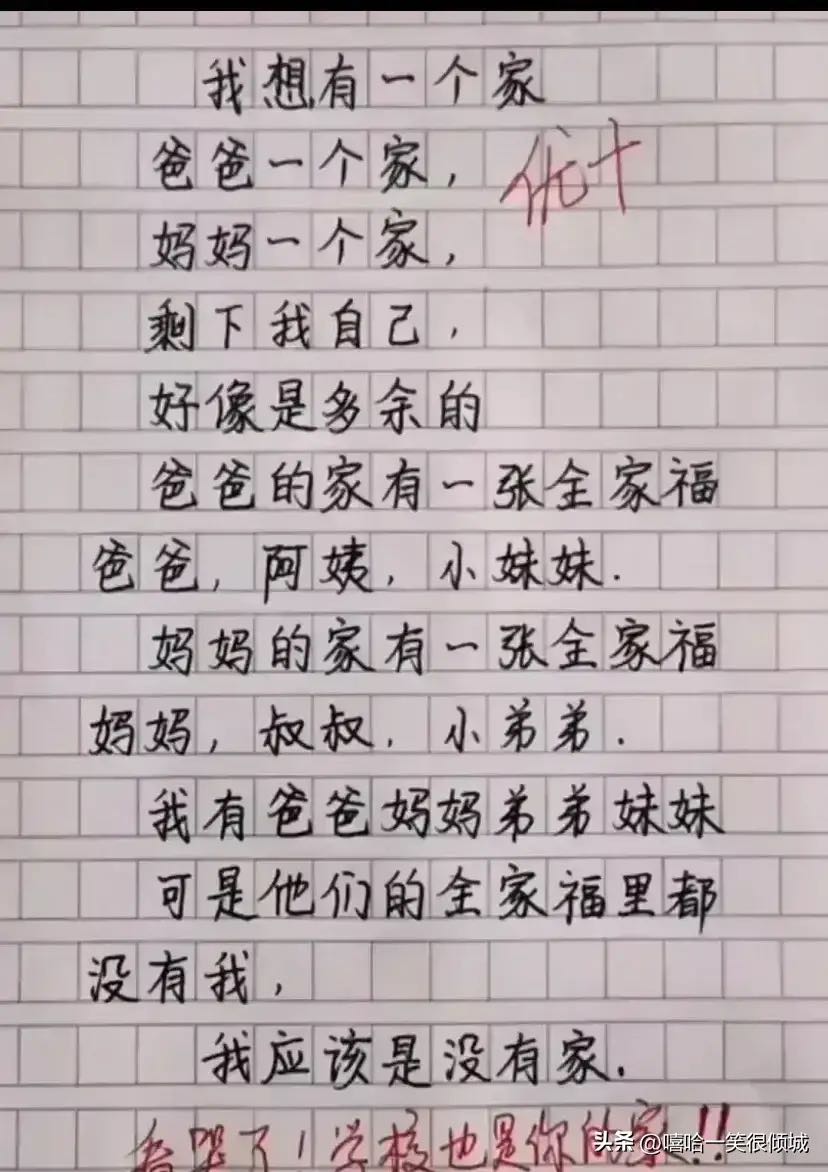 我想有一个家
爸爸一个家，
优+
妈妈一个家，
剩下我自己，
好像是多余的
爸爸的家有一张全家福
爸爸，阿姨，小妹妹.
妈妈的家有一张全家福
妈妈，叔叔，小弟弟.
我有爸爸妈妈弟弟妹妹
可是他们的全家福里都
没有我，
我应该是没有家.
看哭了！学校也是你的家!!
头条 @嘻哈一笑很倾城